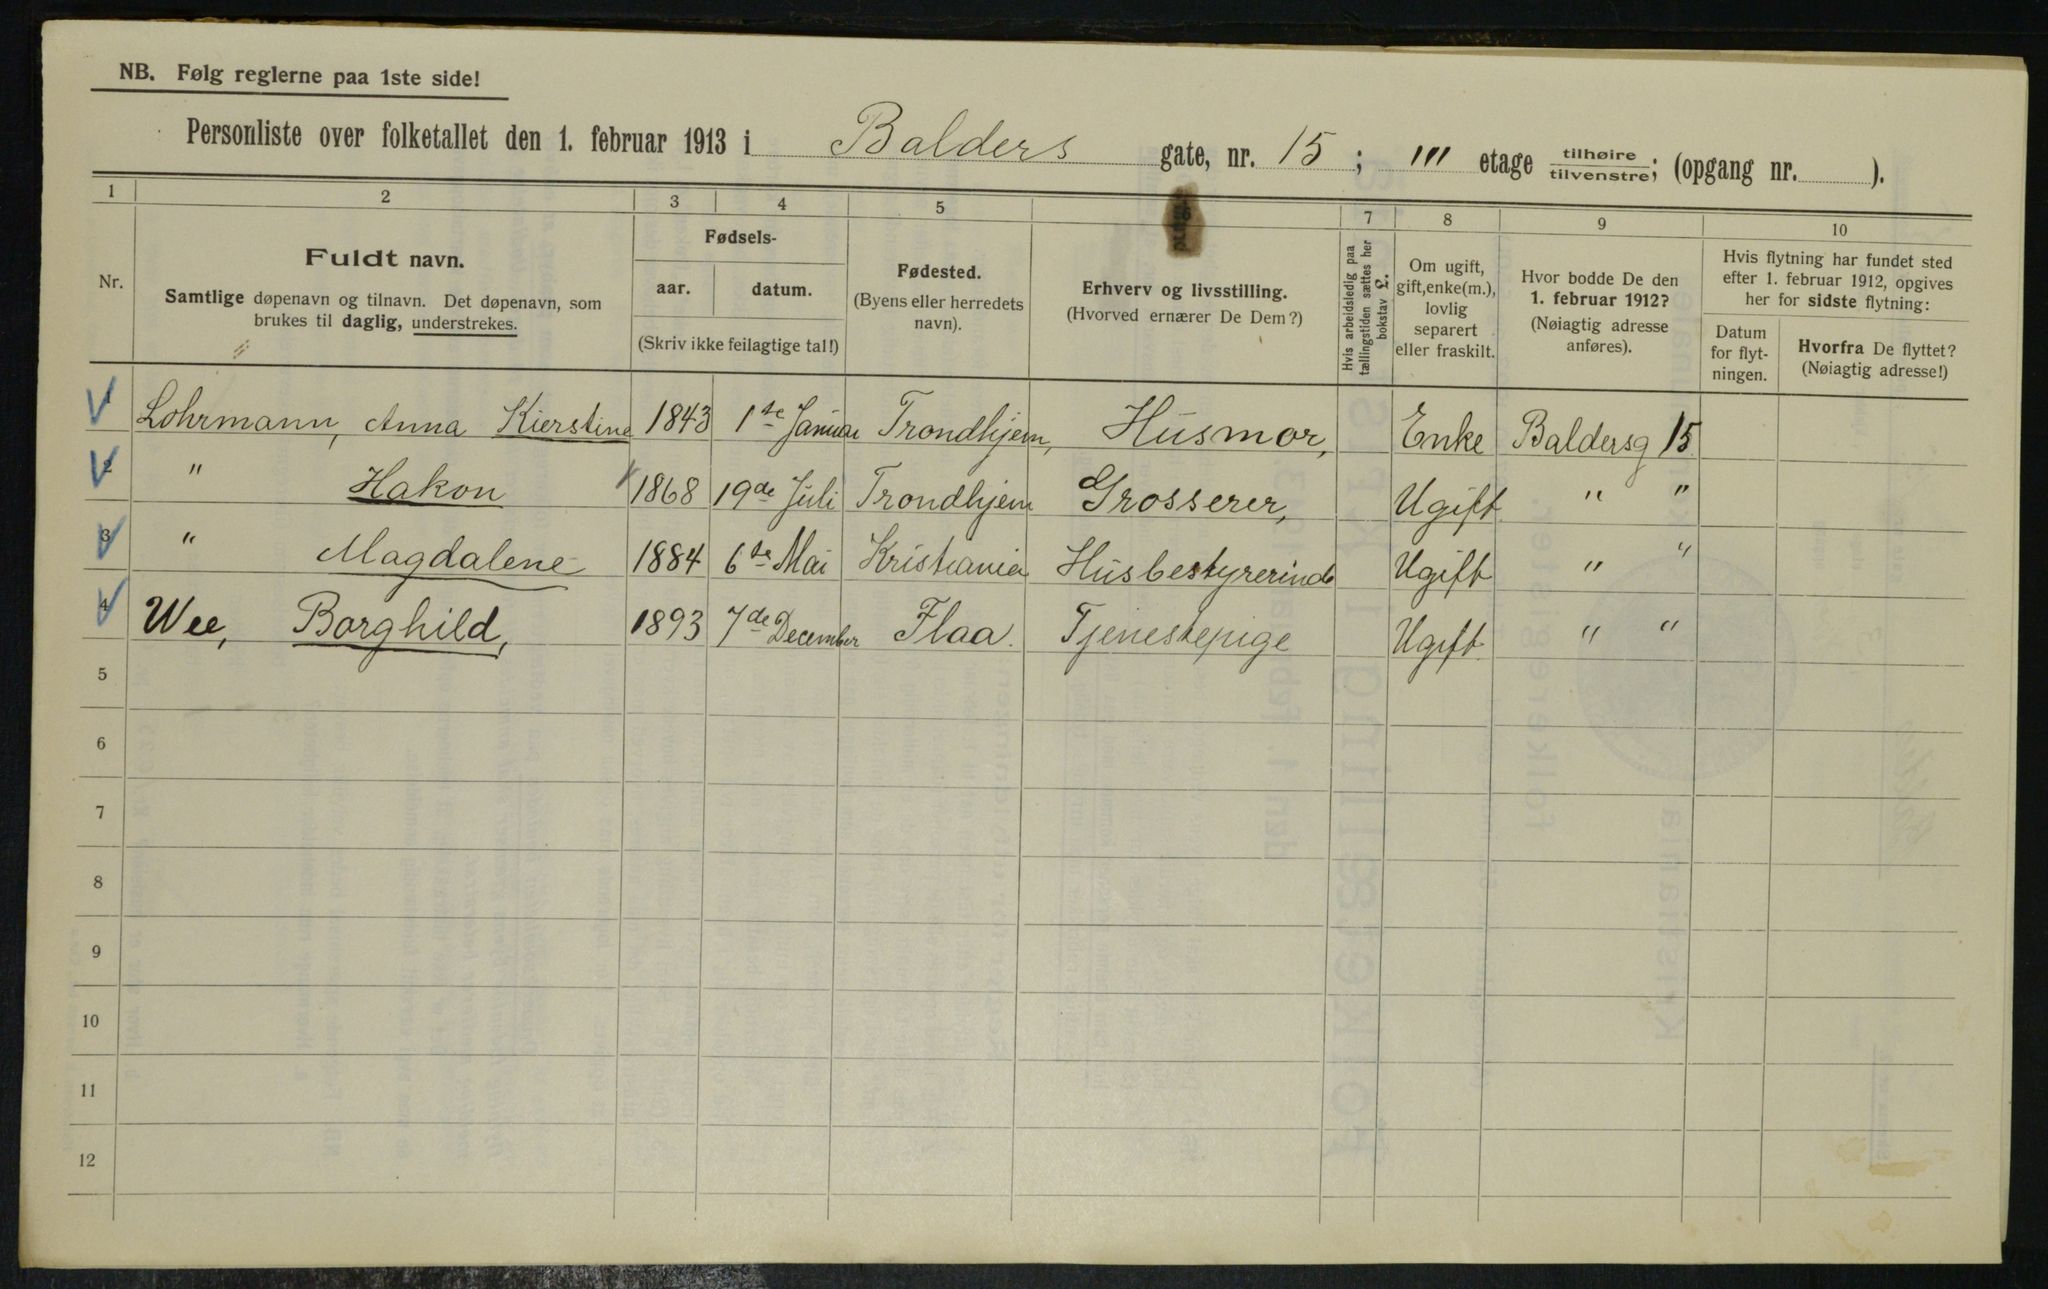 NB. Følg reglerne paa 1ste side!
Personliste over folketallet den 1. februar 1913 i Balders gate, nr. 15; III etage tilhøire / tilvenstre; (opgang nr. ).
1 2 3 4 5 7 8 9 10
Nr.
Fuldt navn.
Samtlige døpenavn og tilnavn. Det døpenavn, som
brukes til daglig, understrekes.
Fødsels-
aar. datum.
(Skriv ikke feilagtige tal!)
Fødested.
(Byens eller herredets
navn).
Erhverv og livsstilling.
(Hvorved ernærer De Dem?)
Hvis arbeidsledig paa
tællingstiden sættes her
bokstav £.
Om ugift,
gift, enke(m.),
lovlig
separert
eller fraskilt.
Hvor bodde De den
1. februar 1912?
(Nøiagtig adresse
anføres).
Hvis flytning har fundet sted
efter 1. februar 1912, opgives
her for sidste flytning:
Datum
for flyt-
ningen.
Hvorfra De flyttet?
(Nøiagtig adresse!)
1 Lohrmann, Anna Kierstine 1843 1ste Januar Trondhjem, Husmor, Enke Baldersg 15
2 " Hakon 1868 19de Juli Trondhjem Grosserer, Ugift " "
3 " Magdalene 1884 6te Mai Kristiania Husbestyrerinde Ugift " "
4 Wee, Borghild, 1893 7de December Flaa. Tjenestepige Ugift " "
5
6
7
8
9
10
11
12